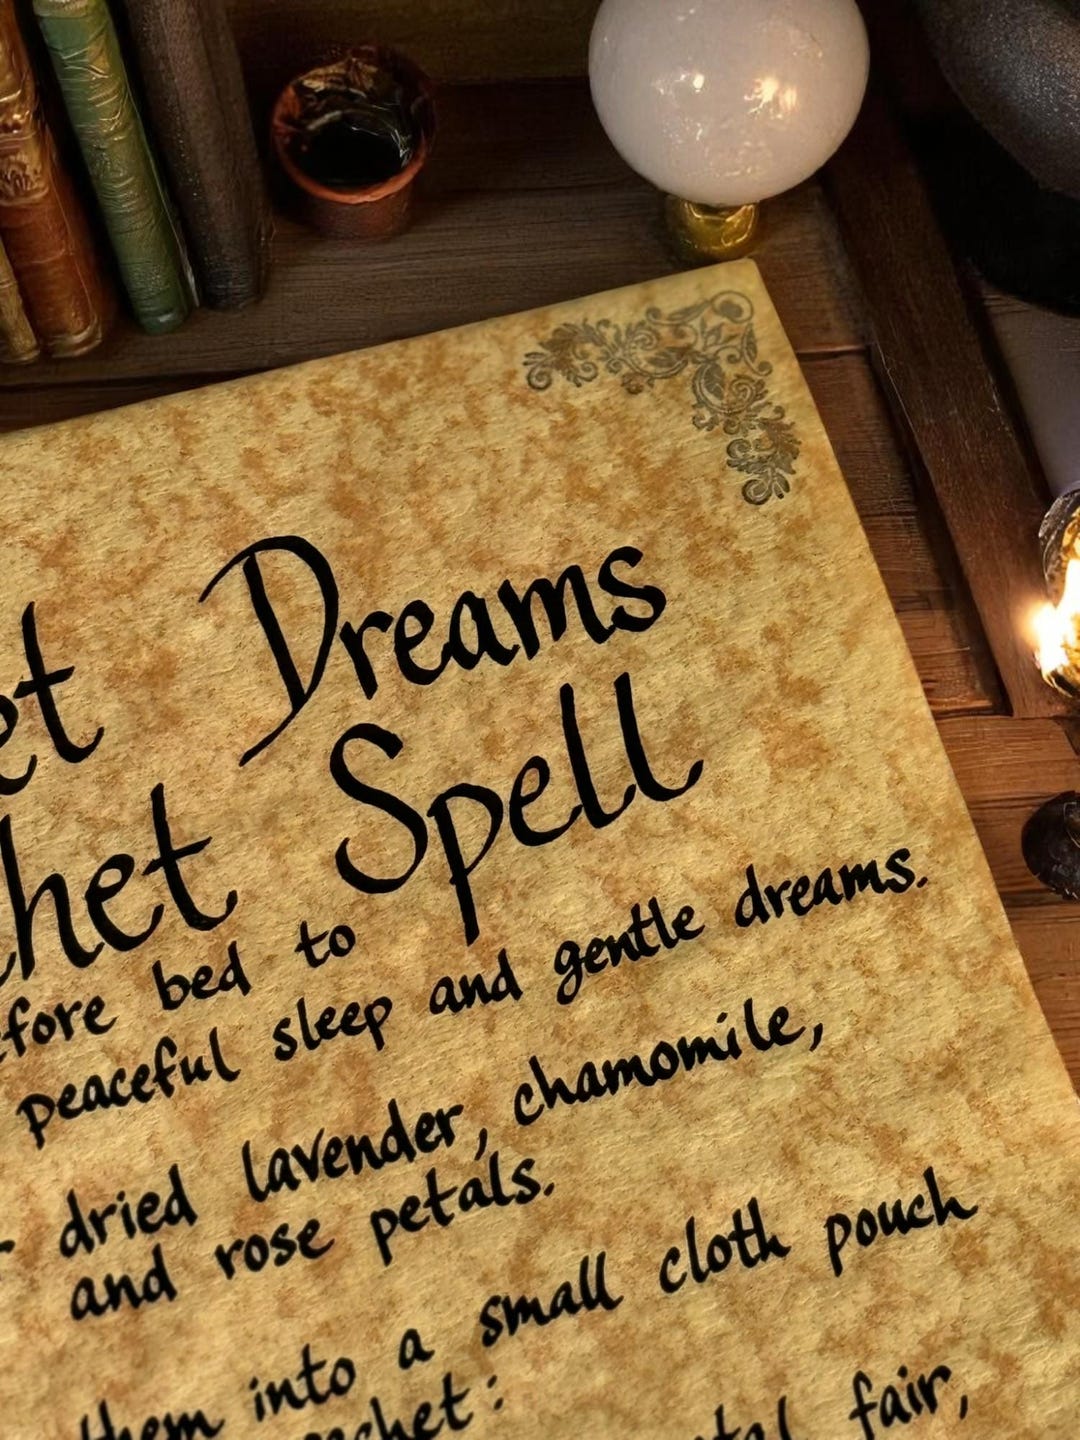 Dreams
Spell
bed to
peaceful sleep and gentle dreams.
dried lavender, chamomile,
and rose petals.
them into a small cloth pouch
fair,